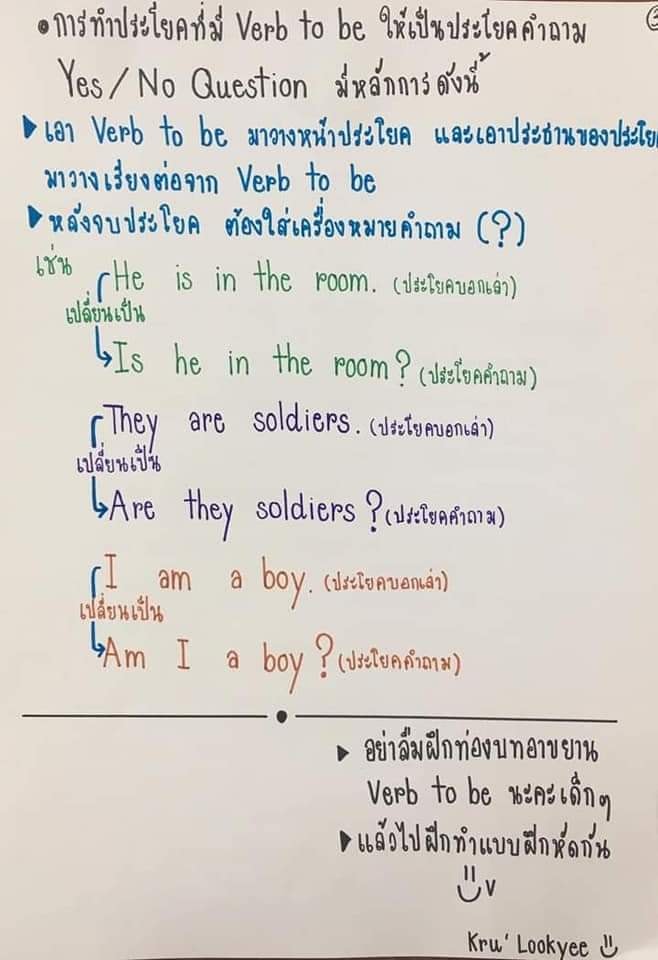 •การทำประโยคที่มี Verb to be ให้เป็นประโยคคำถาม
Yes/No Question มีหลักการดังนี้
▶ เอา Verb to be มาวางหน้าประโยค และเอาประธานของประโย
มาวางเรียงต่อจาก Verb to be
▶ หลังจบประโยค ต้องใส่เครื่องหมายคำถาม (?)
เช่น He is in the room. (ประโยคบอกเล่า)
เปลี่ยนเป็น
Is he in the room? (ประโยคคำถาม)
They are soldiers. (ประโยคบอกเล่า)
เปลี่ยนเป็น
Are they soldiers? (ประโยคคำถาม)
I am a boy. (ประโยคบอกเล่า)
เปลี่ยนเป็น
Am I a boy? (ประโยคคำถาม)
▶ อย่าลืมฝึกท่องบทอาขยาน
Verb to be นะคะเด็กๆ
▶ แล้วไปฝึกทำแบบฝึกหัดกัน
Kru' Lookyee